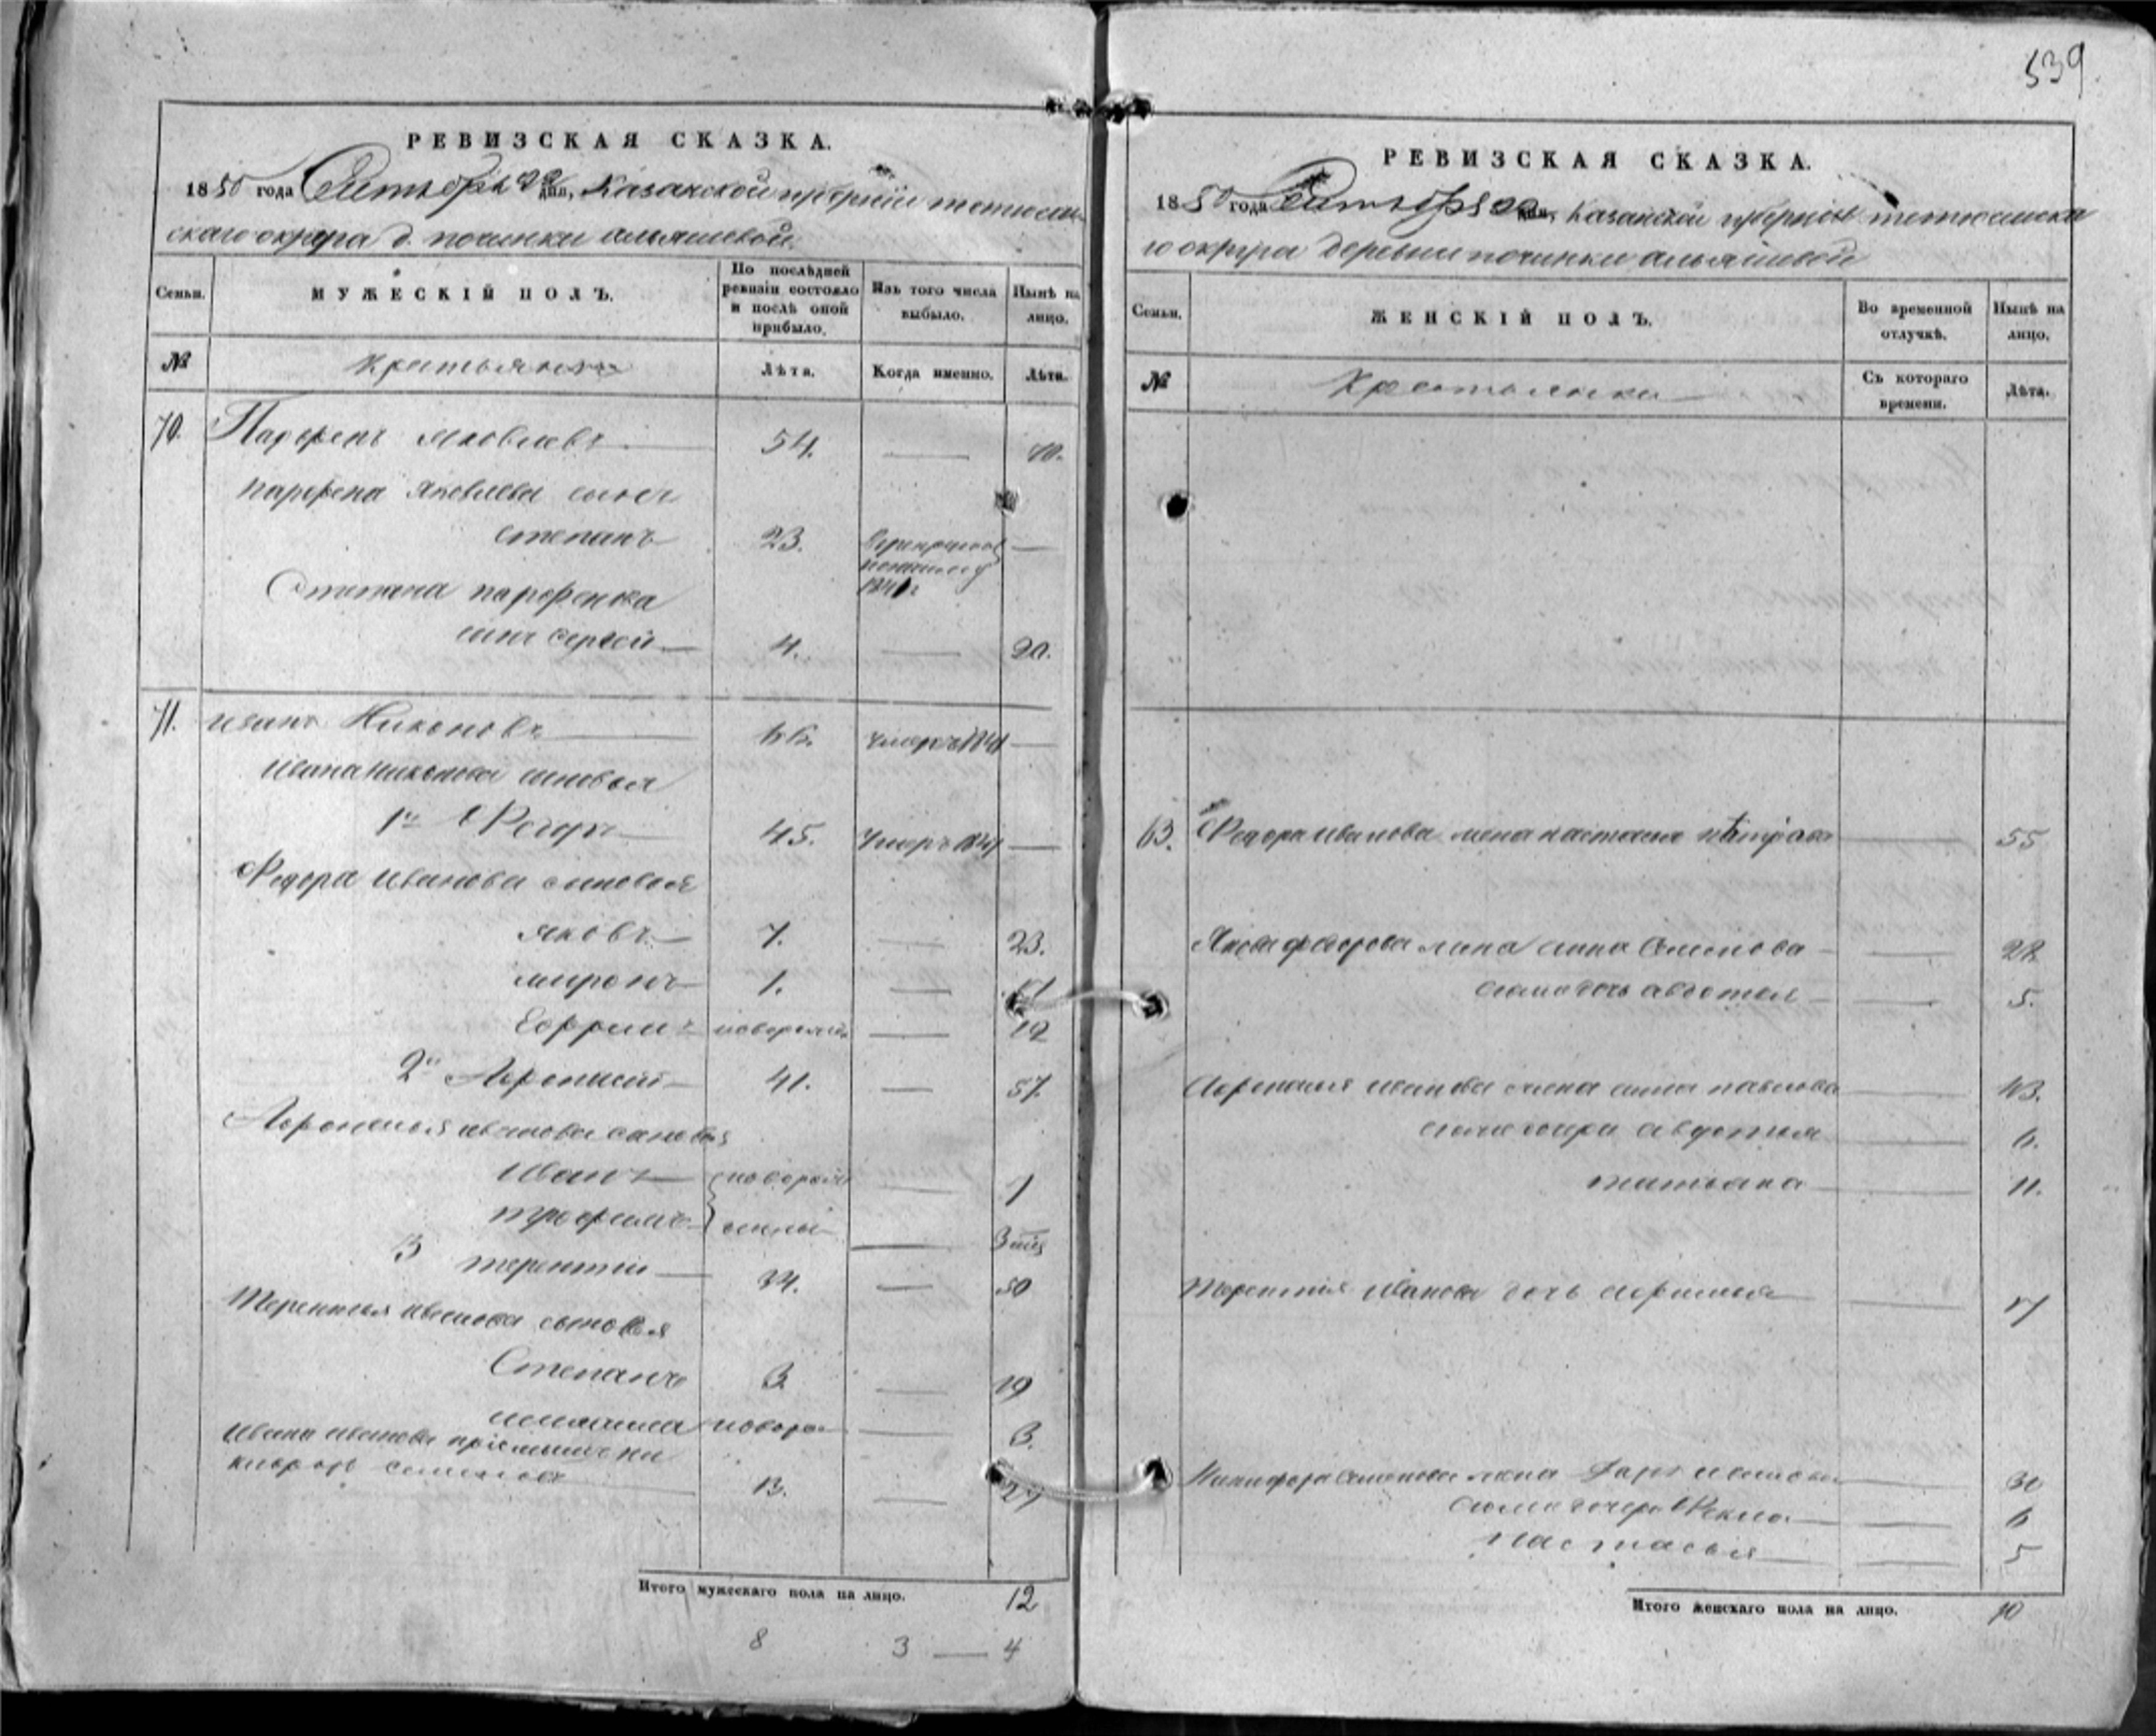 539.
РЕВИЗСКАЯ СКАЗКА.
1850 года Октября 22 дня, Казанской губернии тетюшин
скаго округа д. починки альяшевой.
Семьи.
МУЖЕСКІЙ ПОЛЪ.
По послѣдней ревизіи состояло и послѣ оной прибыло.
Изъ того числа выбыло.
Нынѣ на лицо.
№
Крестьяне
Лѣта.
Когда именно.
Лѣта.
70. Парфенъ Яковлевъ 54. — 70.
Парфена Яковлева сынъ
степанъ 23. —
Степана парфенова
сынъ сергей 4. — 20.
71. иванъ Никоновъ 66. умеръ 1841 —
Ивана Никонова сыновья
1й Федоръ 45. Умеръ —
Федора Иванова сыновья
яковъ 7. — 23.
миронъ 1. — 17
Ефримъ новорожд. — 12
2й Афонасій 41. — 57.
Афонасья иванова сановья
Иванъ новорож — 7
трофимъ — 3
3 терентій 34. — 50
Терентья иванова сыновья
Степанъ 3 — 19
новоро — 3.
Ивана иванова пріемышъ ни
кифоръ семеновъ 13. — 29
Итого мужескаго пола на лицо. 12
8 3 — 4
РЕВИЗСКАЯ СКАЗКА.
1850 года Октября дня, Казанской губерніи тетюшска
го округа деревни починки альяшевой
Семьи.
ЖЕНСКІЙ ПОЛЪ.
Во временной отлучкѣ.
Нынѣ на лицо.
№
Крестьянки
Съ котораго времени.
Лѣта.
Федора Иванова жена настасья петрова — 55
Якова федорова жена анна Семенова — 22
дочь авдотья — 5.
Афонасья иванова жена анна павлова — 43.
дочери авдотья — 6.
татьяна — 11.
Терентія Иванова дочь афимья — 7
Никифора Семенова жена — 30
дочери Фекла — 6
Настасья — 5
Итого женскаго пола на лицо. 10